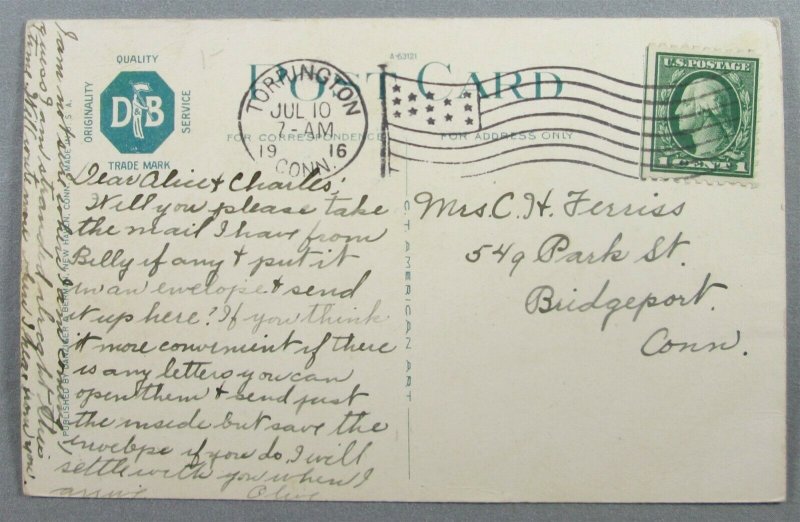 QUALITY
ORIGINALITY
D B
SERVICE
TRADE MARK
A-63121
POST CARD
FOR CORRESPONDENCE
FOR ADDRESS ONLY
TORRINGTON
JUL 10
7-AM
19 16
CONN.
U.S. POSTAGE
1 CENT 1
Dear Alice & Charles;
Will you please take
the mail I have from
Billy if any & put it
in an envelope & send
it up here? If you think
it more convenient if there
is any letters you can
open them & send just
the inside but save the
envelope if you do, I will
settle with you when I
arrive Olive
I am in the
CT AMERICAN ART
Mrs. C. H. Ferriss
549 Park St.
Bridgeport.
Conn.